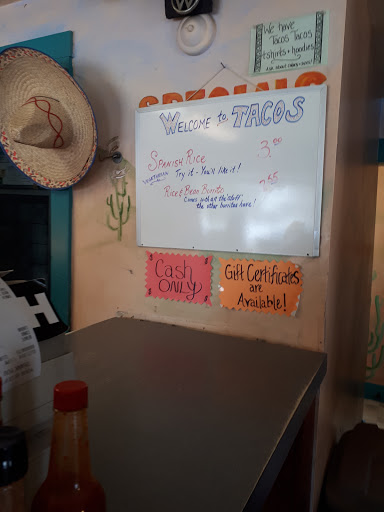 We HAVE
TACOS TACOS
t-shirts + hoodies
SPECIALS
WELCOME to TACOS
SPANISH RICE 3.00
VEGETARIAN Try it - You'll like it!
RICE & BEAN BURRITO
Comes with all the "stuff"
the other burritos have!
Cash
ONLY
Gift Certificates
are
Available!
H